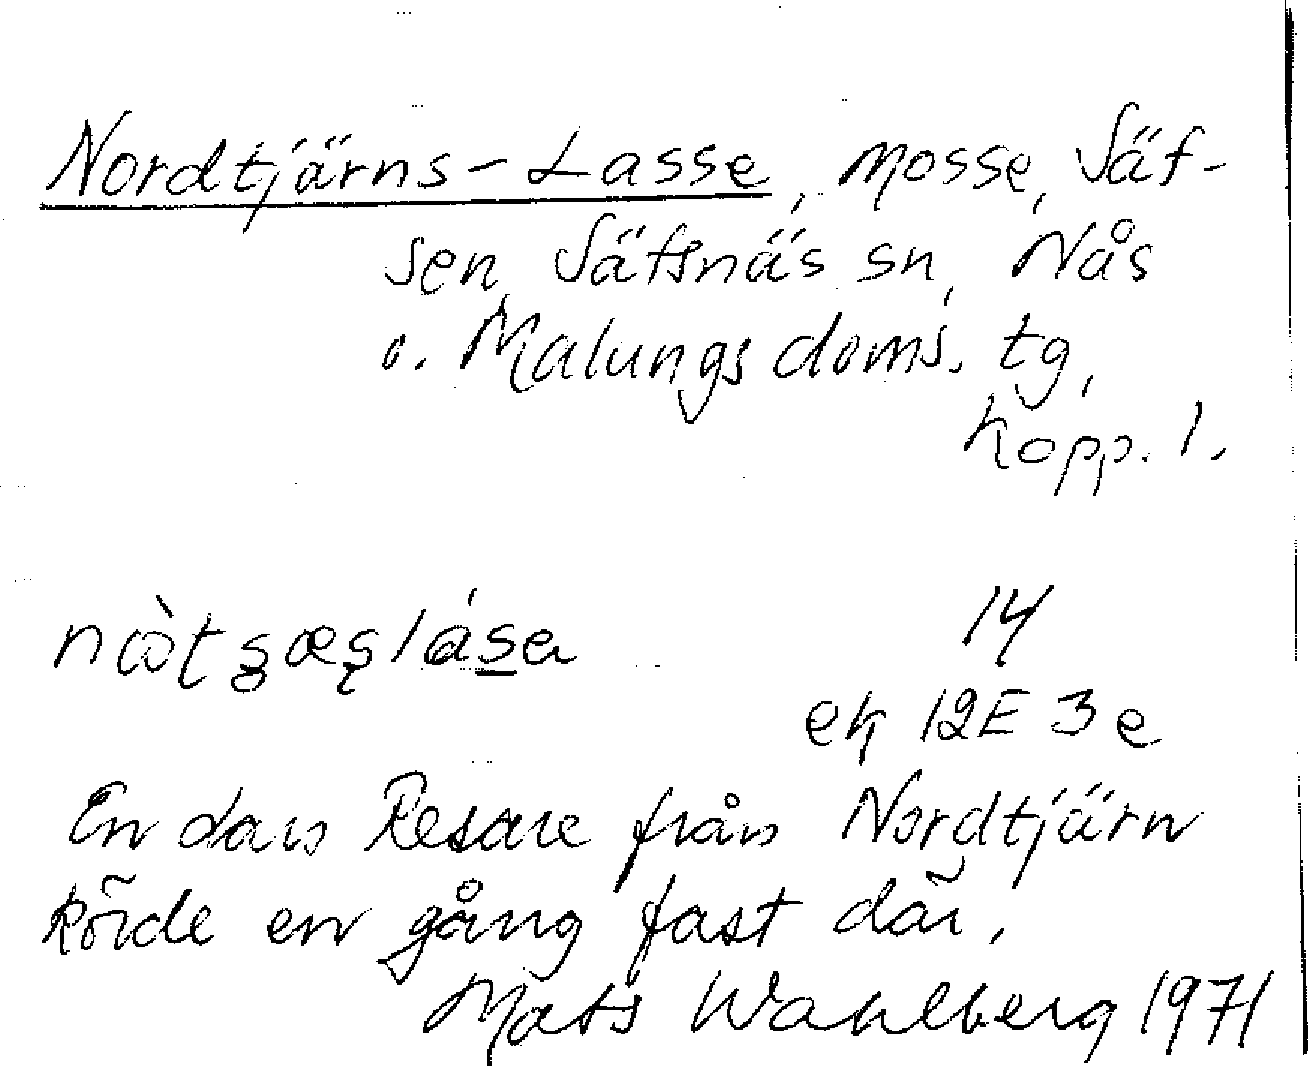 Nordtjärns-Lasse, mosse, Säf-
sen, Säfsnäs sn, Nås
o. Malungs doms. tg,
Kopp. l.
14
ek 12E 3e
En Resare från Nordtjärn
körde en gång fast där.
Mats Wahlberg 1971